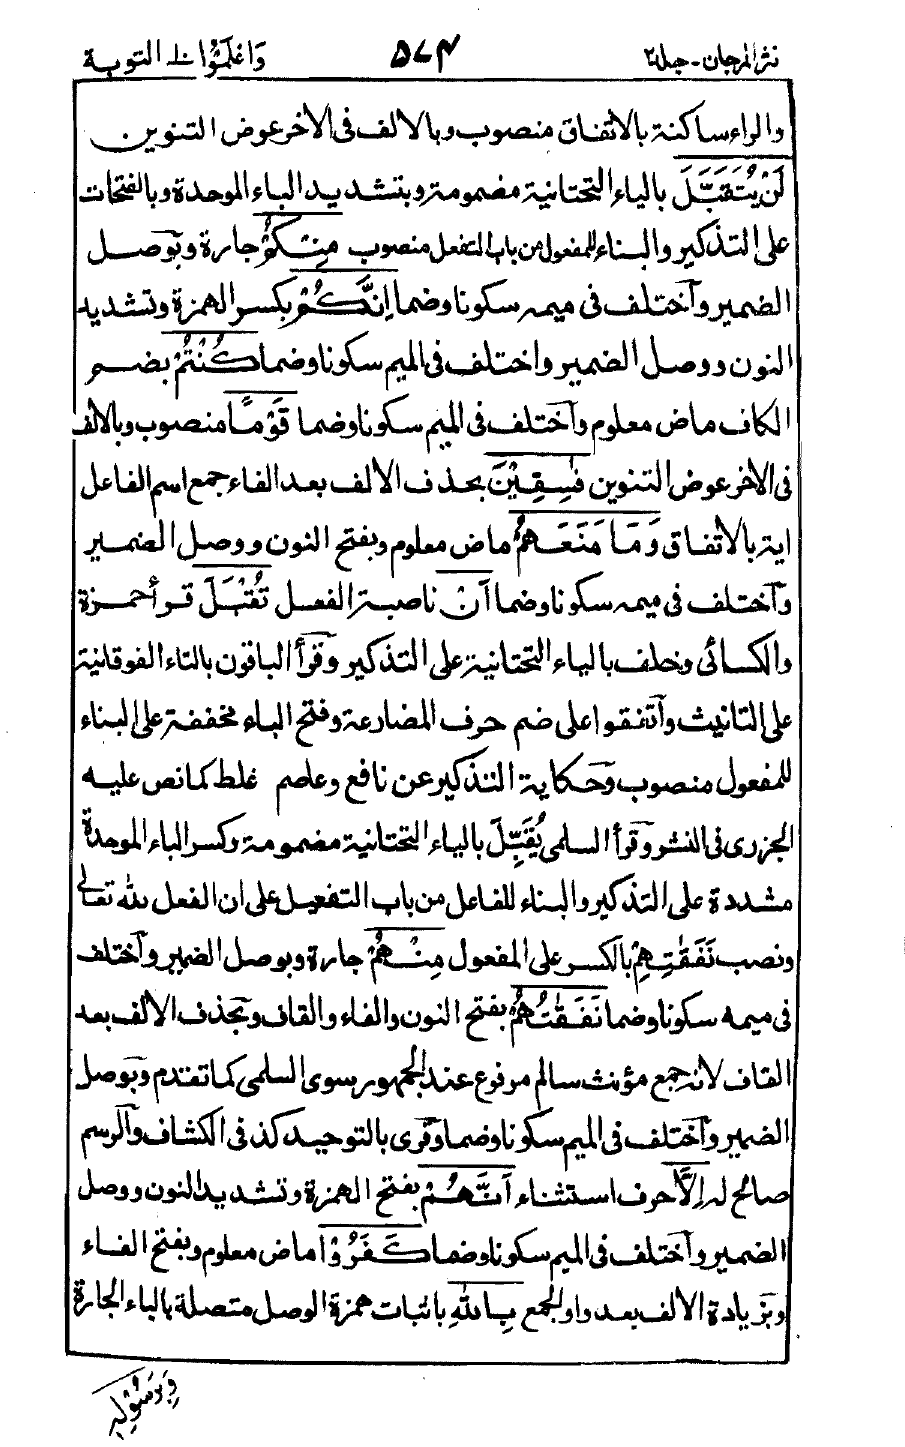 نثر المرجان - جلد ٢ ٥٧٤ واعلموا ١٠ التوبة
والراء ساكنة بالاتفاق منصوب وبالالف فى الاخر عوض التنوين
لَنْ يُّتَقَبَّلَ بالياء التحتانية مضمومة وبتشديد الباء الموحدة وبالفتحات
على التذكير والبناء للمفعول من باب التفعل منصوب مِنْكُمْ جارة وبوصل
الضمير واختلف فى ميمه سكونا وضما اِنَّكُمْ بكسر الهمزة وتشديد
النون ووصل الضمير واختلف فى الميم سكونا وضما كُنْتُمْ بضم
الكاف ماض معلوم واختلف فى الميم سكونا وضما قَوْمًا منصوب وبالالف
فى الاخر عوض التنوين فٰسِقِيْنَ بحذف الالف بعد الفاء جمع اسم الفاعل
اية بالاتفاق وَمَا مَنَعَهُمْ ماض معلوم وبفتح النون ووصل الضمير
واختلف فى ميمه سكونا وضما اَنْ ناصبة الفعل تُقْبَلَ قرأ حمزة
والكسائى وخلف بالياء التحتانية على التذكير وقرأ الباقون بالتاء الفوقانية
على التانيث واتفقوا على ضم حرف المضارعة وفتح الباء مخففة على البناء
للمفعول منصوب وحكاية التذكير عن نافع وعاصم غلط كما نص عليه
الجزرى فى النشر وقرأ السلمى يُقَبِّلَ بالياء التحتانية مضمومة وكسر الباء الموحدة
مشددة على التذكير والبناء للفاعل من باب التفعيل على ان الفعل لله تعالى
ونصب نَفَقٰتِهِمْ بالكسر على المفعول مِنْهُمْ جارة وبوصل الضمير واختلف
فى ميمه سكونا وضما نَفَقٰتُهُمْ بفتح النون والفاء والقاف وبحذف الالف بعد
القاف لانه جمع مؤنث سالم مرفوع عند الجمهور سوى السلمى كما تقدم وبوصل
الضمير واختلف فى الميم سكونا وضما وقرى بالتوحيد كذا فى الكشاف والرسم
صالح له اِلَّا حرف استثناء اَنَّهُمْ بفتح الهمزة وتشديد النون ووصل
الضمير واختلف فى الميم سكونا وضما كَفَرُوْا ماض معلوم وبفتح الفاء
وبزيادة الالف بعد واو الجمع بِاللهِ باثبات همزة الوصل متصلة بالباء الجارة
وَبِرَسُوْلِهٖ